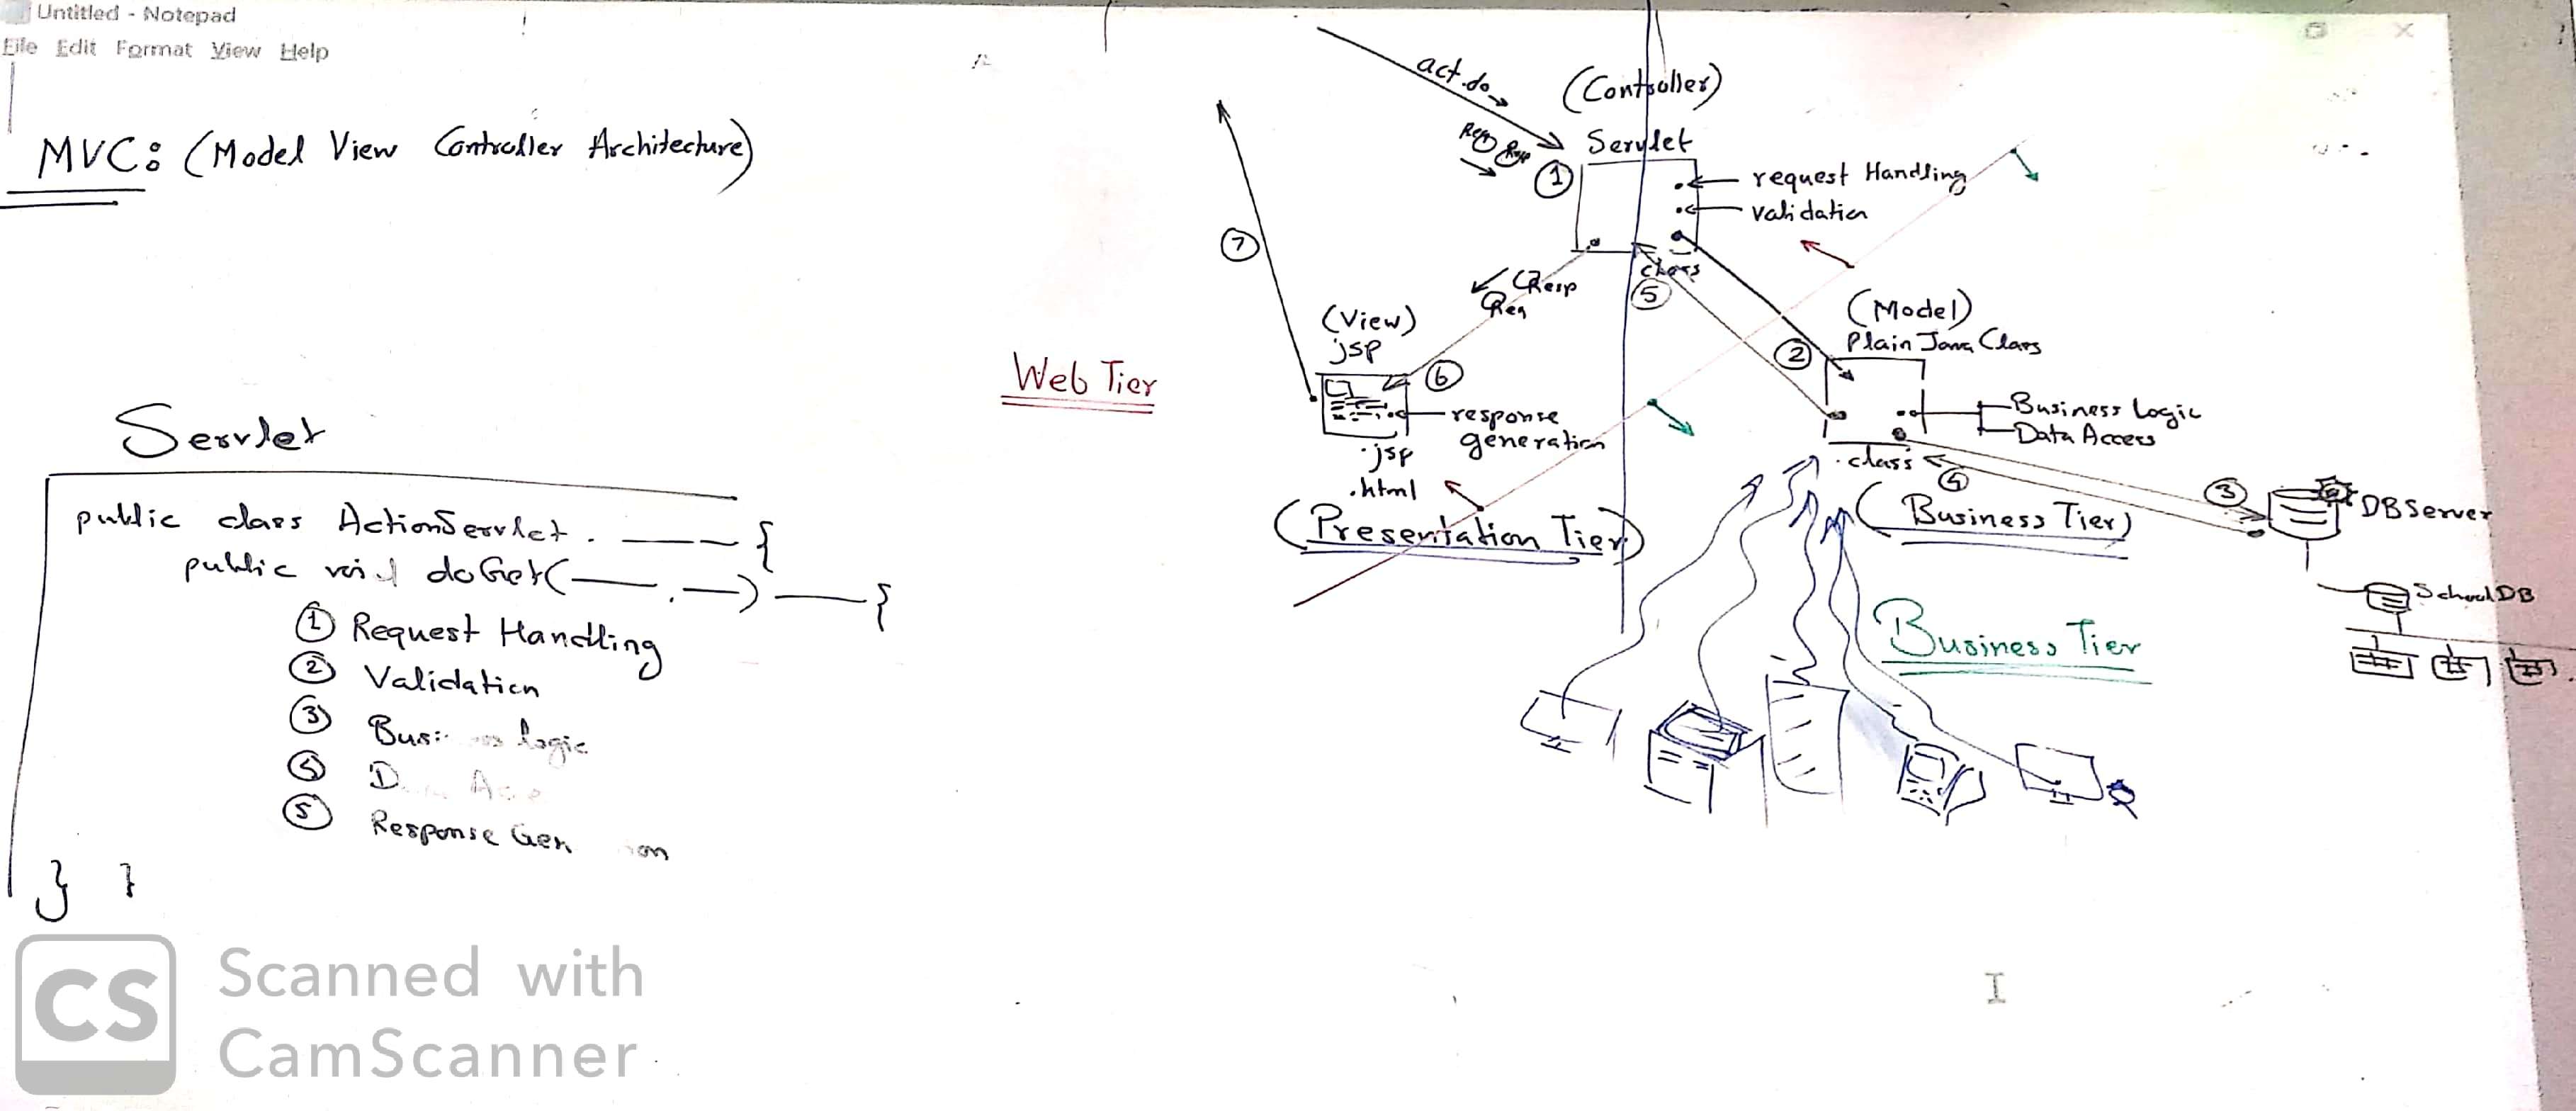 Untitled - Notepad
File Edit Format View Help
MVC: (Model View Controller Architecture)
Servlet
public class ActionServlet. {
public void doGet( , ) {
① Request Handling
② Validation
③ logic
④
⑤ Response
} }
Web Tier
act.do
(Controller)
Servlet
①
request Handling
validation
class
⑤
Resp
Req
⑦
(View)
jsp
⑥
response
generation
.jsp
.html
(Presentation Tier)
(Model)
Plain Java Class
②
Business Logic
Data Access
.class
④
(Business Tier)
③
DBServer
SchoolDB
Business Tier
CS
Scanned with
CamScanner